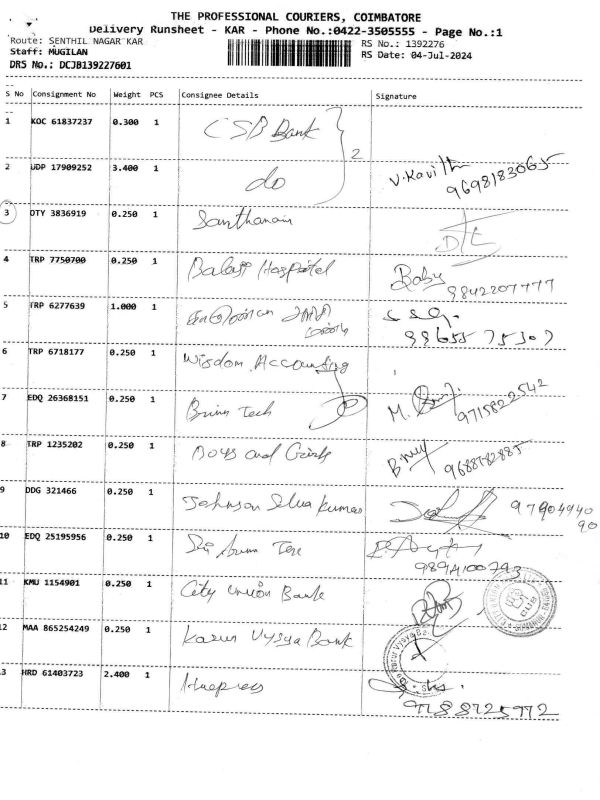 THE PROFESSIONAL COURIERS, COIMBATORE
Delivery Runsheet - KAR - Phone No.:0422-3505555 - Page No.:1
Route: SENTHIL NAGAR KAR
RS No.: 1392276
Staff: MUGILAN
RS Date: 04-Jul-2024
DRS No.: DCJB139227601
S No Consignment No Weight PCS Consignee Details Signature
1 KOC 61837237 0.300 1 CSB Bank
2
2 UDP 17909252 3.400 1 do V. Kavitha
9698183065
3 OTY 3836919 0.250 1 Santhanam
4 TRP 7750700 0.250 1 Balaji Hospital Baby
9842207777
5 TRP 6277639 1.000 1
99655 75307
6 TRP 6718177 0.250 1 Wisdom Accounting
7 EDQ 26368151 0.250 1 Tech M.
9715822542
8 TRP 1235202 0.250 1 Boys and Girls
9 DDG 321466 0.250 1 Johnson Selva Kumar
97904940
90
10 EDQ 25195956 0.250 1 Sri
9894100793
11 KMU 1154901 0.250 1 City Union Bank
CUB
12 MAA 865254249 0.250 1 Karur Vysya Bank
13 HRD 61403723 2.400 1
9788725772